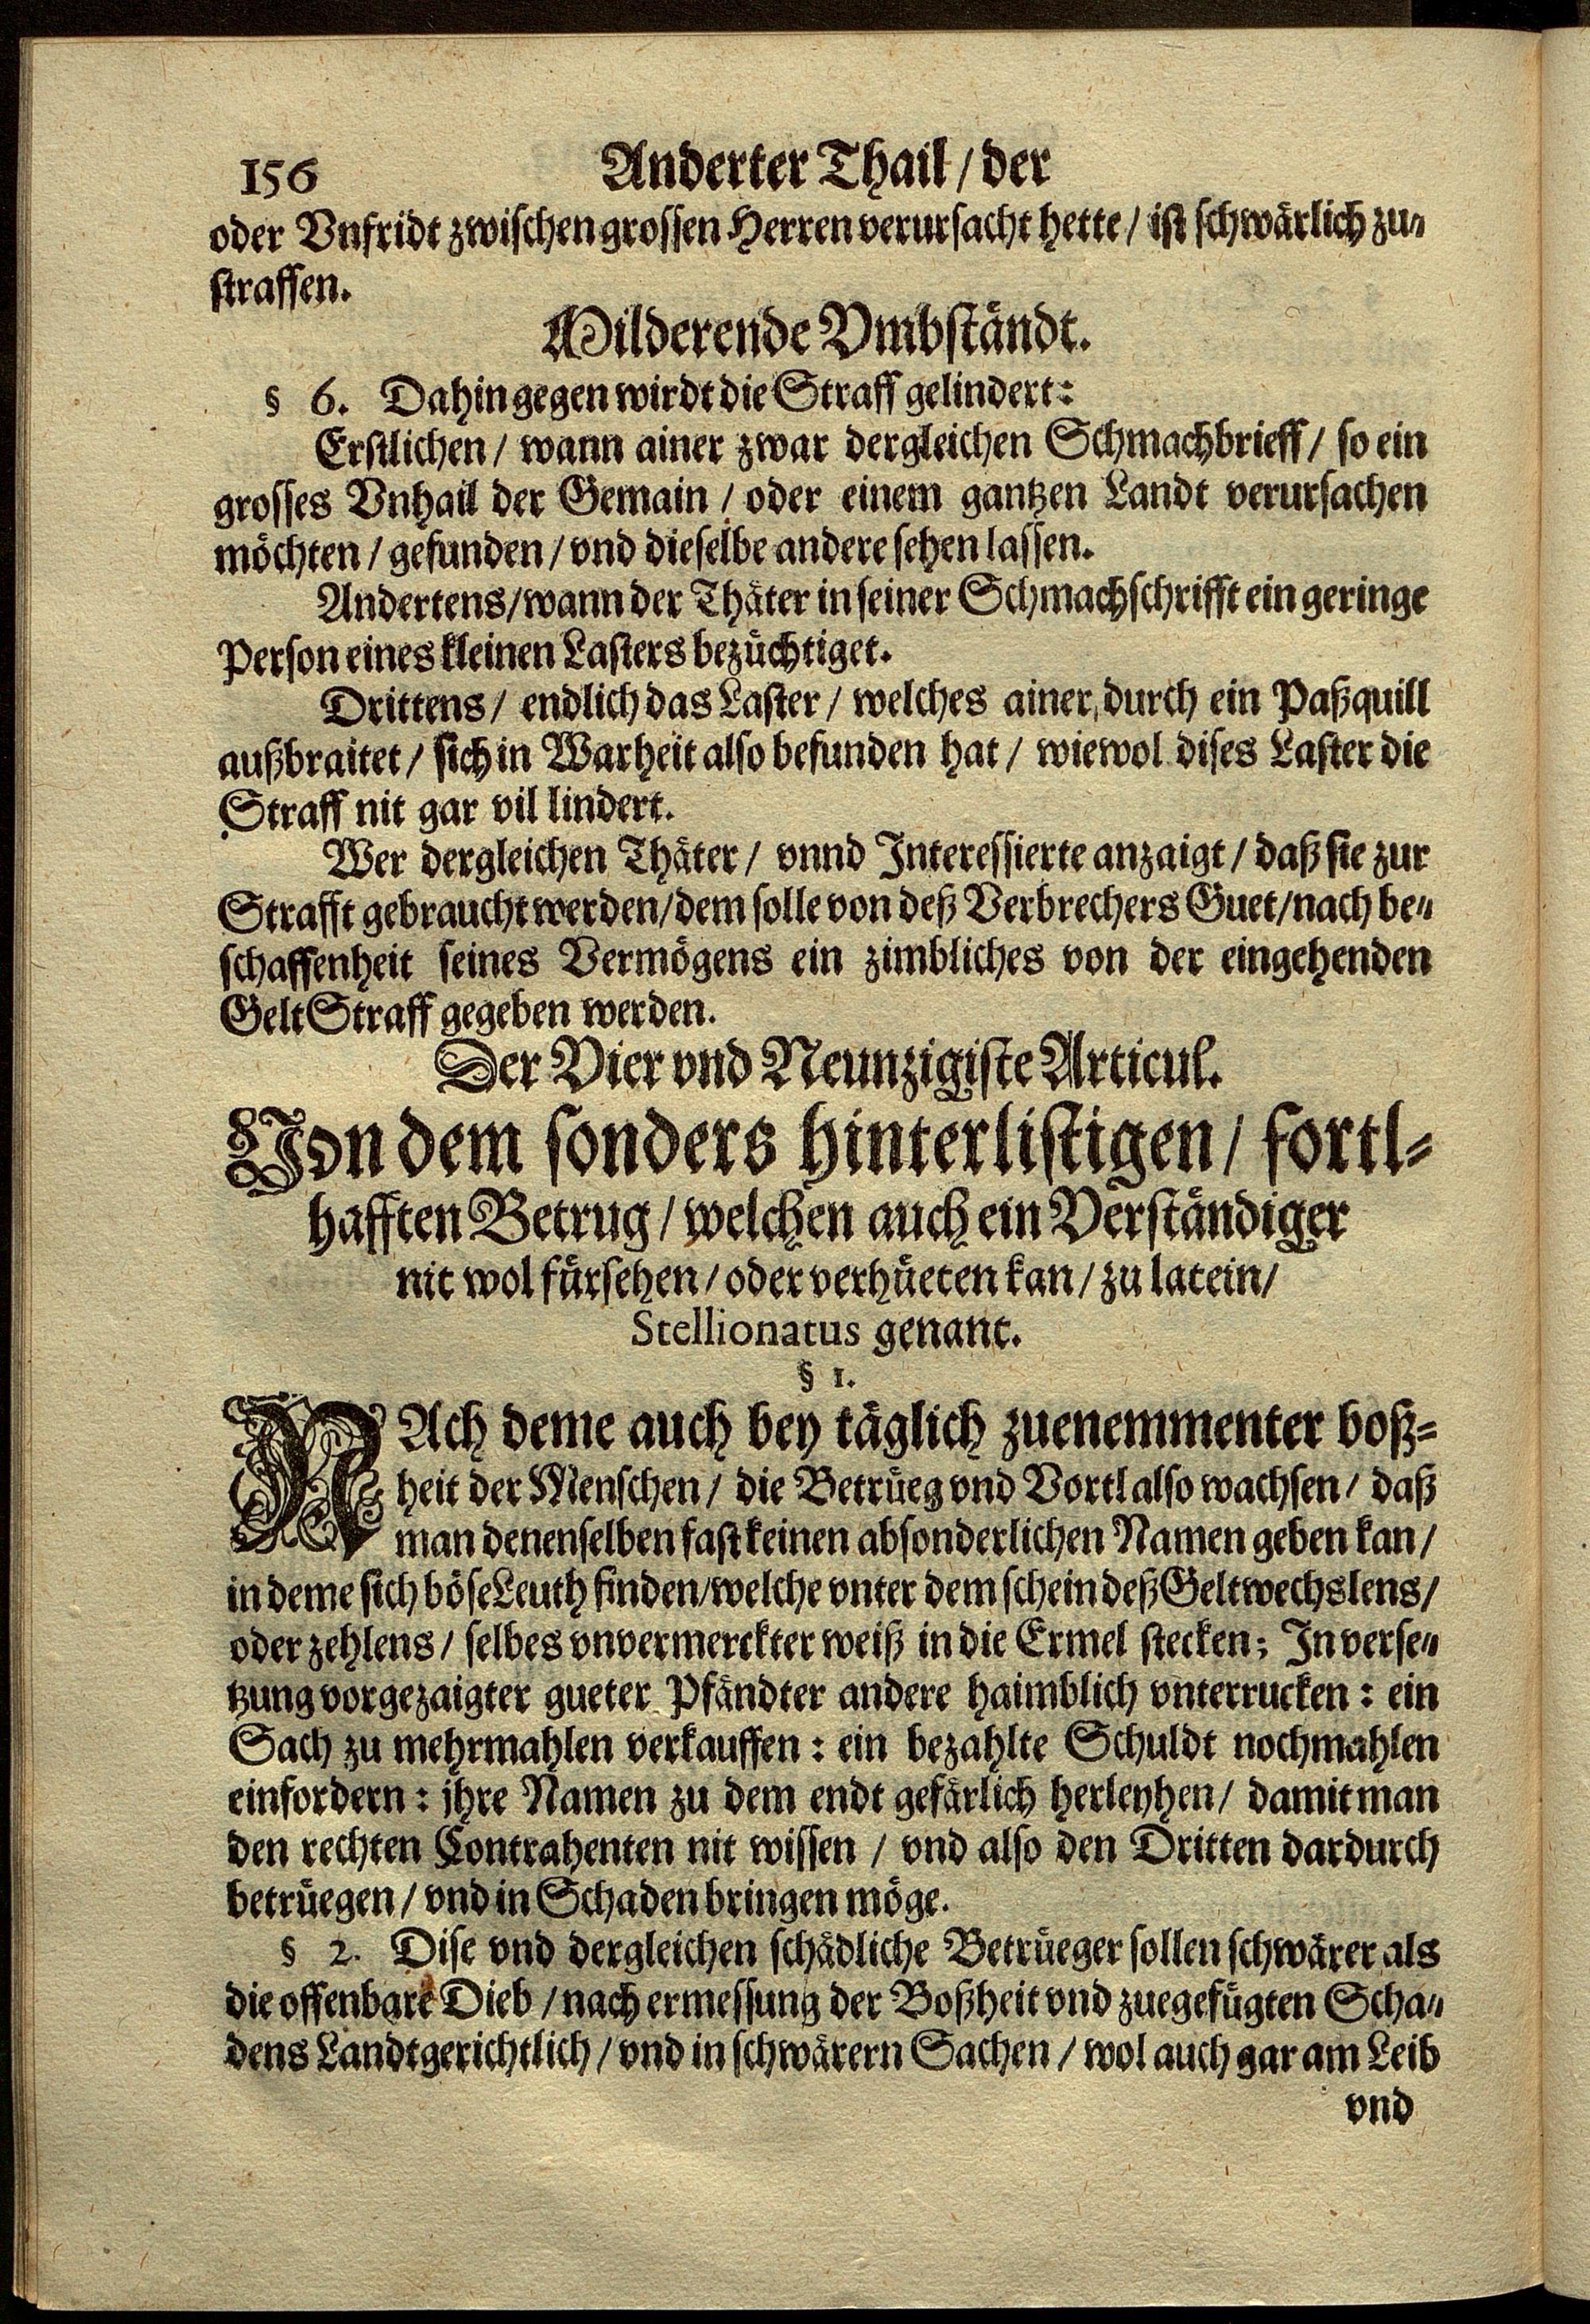 156 Anderter Thail / der
oder Vnfridt zwischen grossen Herren verursacht hette / ist schwärlich zu-
straffen.
Milderende Vmbständt.
§ 6. Dahingegen wirdt die Straff gelindert:
Erstlichen / wann ainer zwar dergleichen Schmachbrieff / so ein
grosses Vnhail der Gemain / oder einem gantzen Landt verursachen
möchten / gefunden / vnd dieselbe andere sehen lassen.
Andertens / wann der Thäter in seiner Schmachschrifft ein geringe
Person eines kleinen Lasters bezüchtiget.
Drittens / endlich das Laster / welches ainer, durch ein Paßquill
außbraitet / sich in Warheit also befunden hat / wiewol dises Laster die
Straff nit gar vil lindert.
Wer dergleichen Thäter / vnnd Interessierte anzaigt / daß sie zur
Strafft gebraucht werden / dem solle von deß Verbrechers Guet / nach be-
schaffenheit seines Vermögens ein zimbliches von der eingehenden
Gelt Straff gegeben werden.
Der Vier vnd Neunzigiste Articul.
Von dem sonders hinterlistigen / fortl-
hafften Betrug / welchen auch ein Verständiger
nit wol fürsehen / oder verhüeten kan / zu latein /
Stellionatus genant.
§ 1.
NAch deme auch bey täglich zuenemmenter boß-
heit der Menschen / die Betrüeg vnd Vortl also wachsen / daß
man denenselben fast keinen absonderlichen Namen geben kan /
in deme sich böse Leuth finden / welche vnter dem schein deß Geltwechslens /
oder zehlens / selbes vnvermerckter weiß in die Ermel stecken; In verse-
tzung vorgezaigter gueter Pfändter andere haimblich vnterrucken: ein
Sach zu mehrmahlen verkauffen: ein bezahlte Schuldt nochmahlen
einfordern: jhre Namen zu dem endt gefärlich herleyhen / damit man
den rechten Contrahenten nit wissen / vnd also den Dritten dardurch
betrüegen / vnd in Schaden bringen möge.
§ 2. Dise vnd dergleichen schädliche Betrüeger sollen schwärer als
die offenbare Dieb / nach ermessung der Boßheit vnd zuegefügten Scha-
dens Landtgerichtlich / vnd in schwärern Sachen / wol auch gar am Leib
vnd